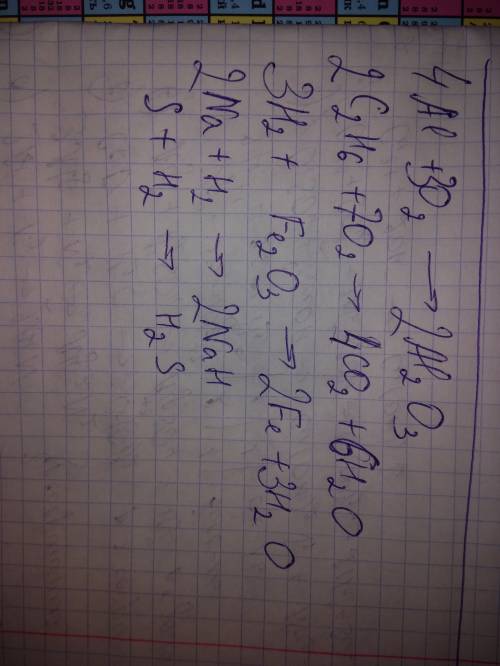 4Al + 3O₂ → 2Al₂O₃
2C₂H₆ + 7O₂ → 4CO₂ + 6H₂O
3H₂ + Fe₂O₃ → 2Fe + 3H₂O
2Na + H₂ → 2NaH
S + H₂ → H₂S